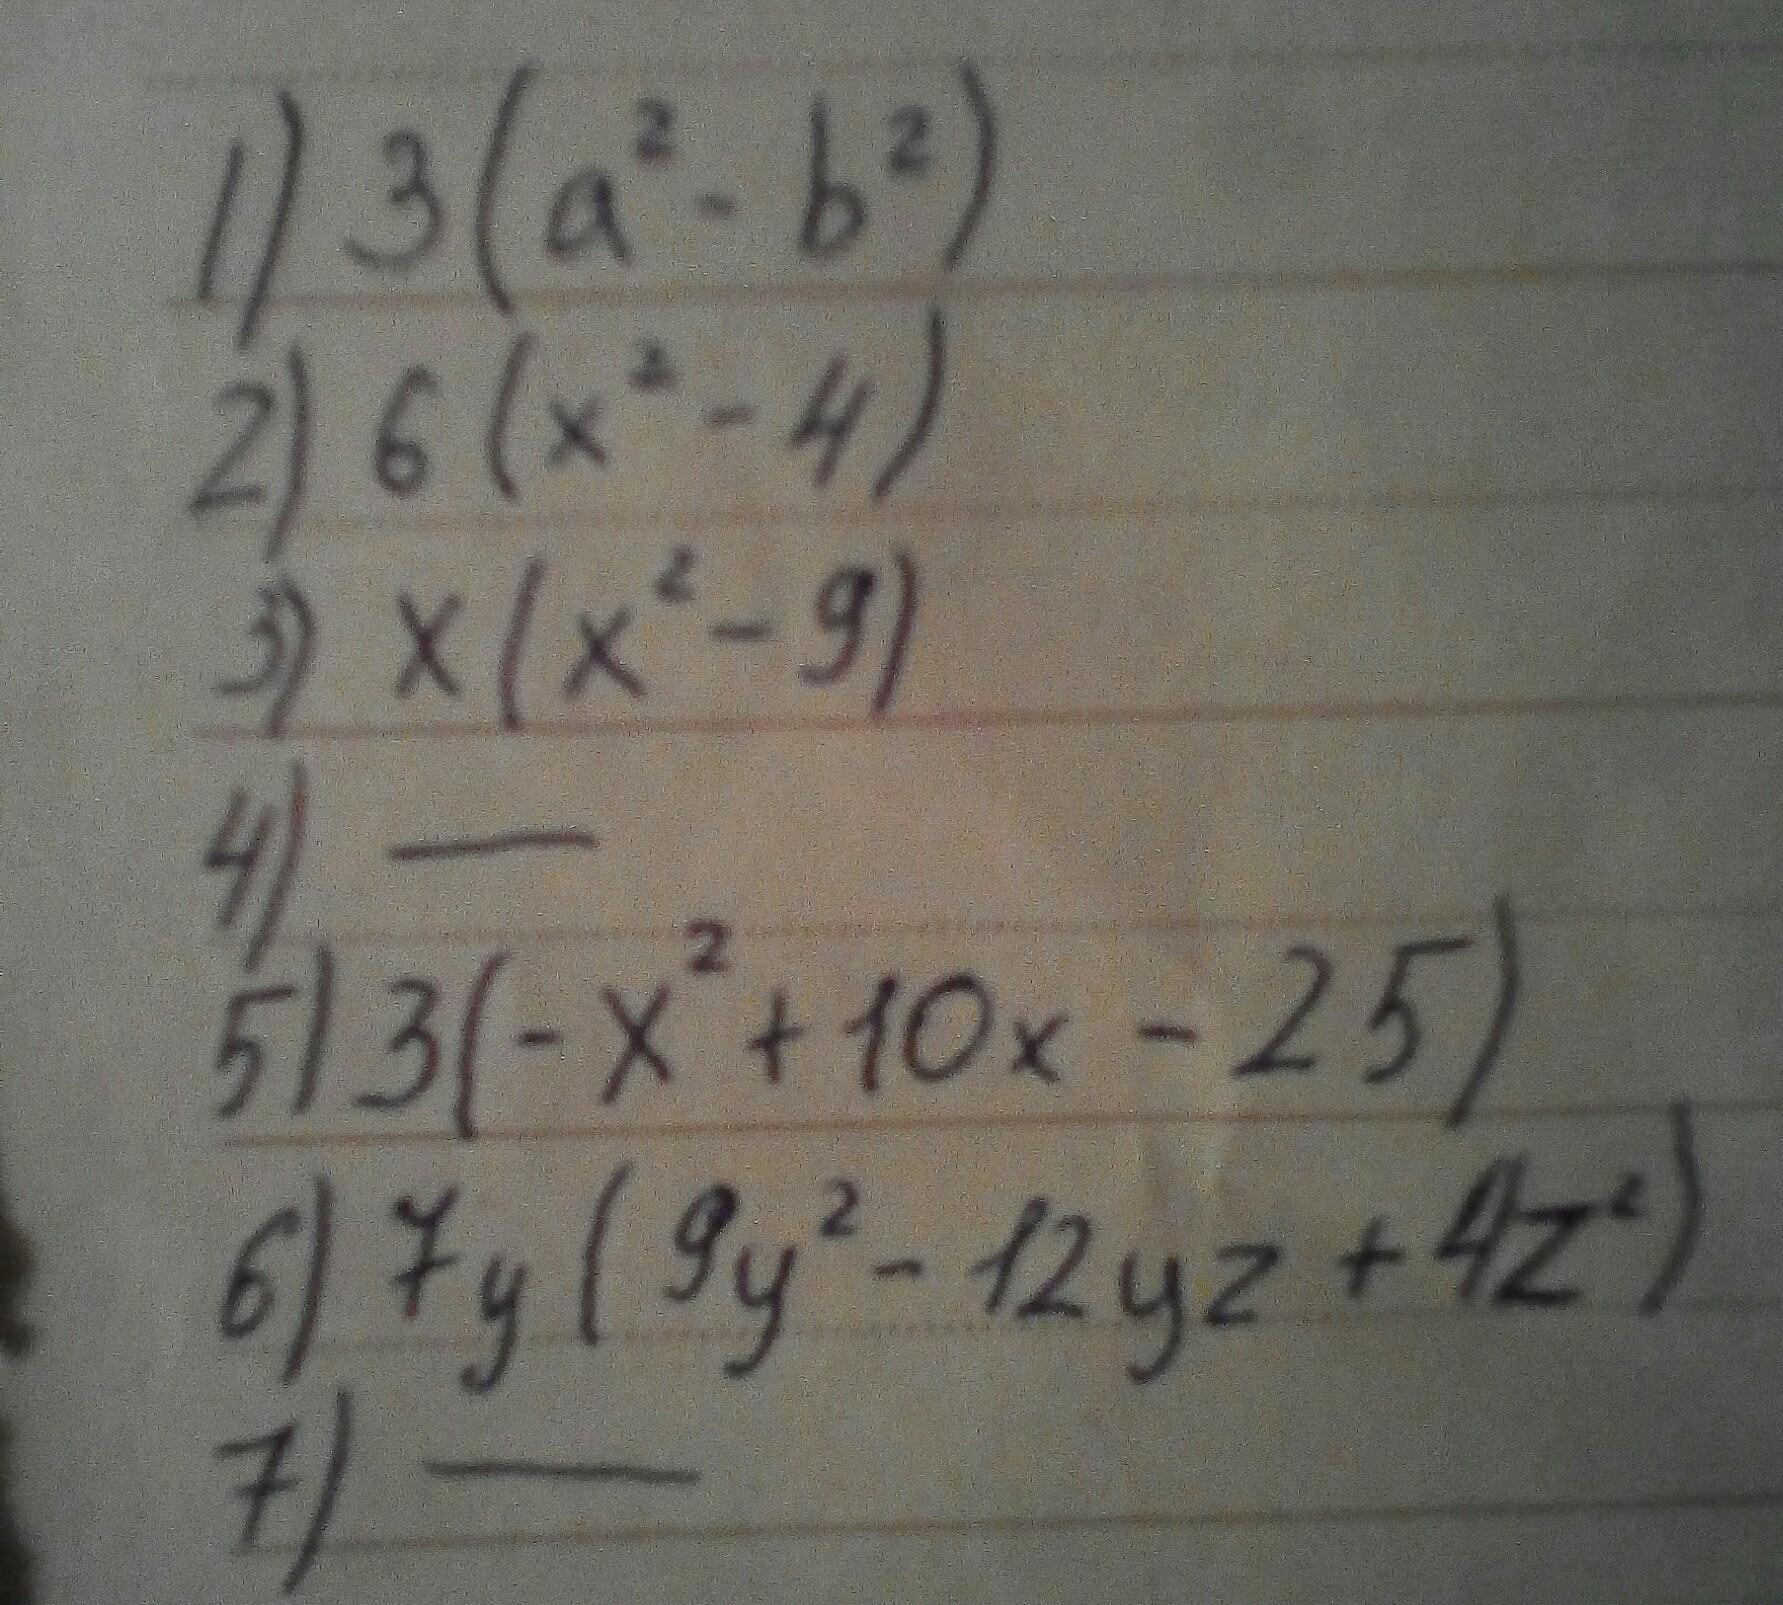 1) 3(a² - b²)
2) 6(x² - 4)
3) x(x² - 9)
4) —
5) 3(-x² + 10x - 25)
6) 7y(9y² - 12yz + 4z²)
7) —